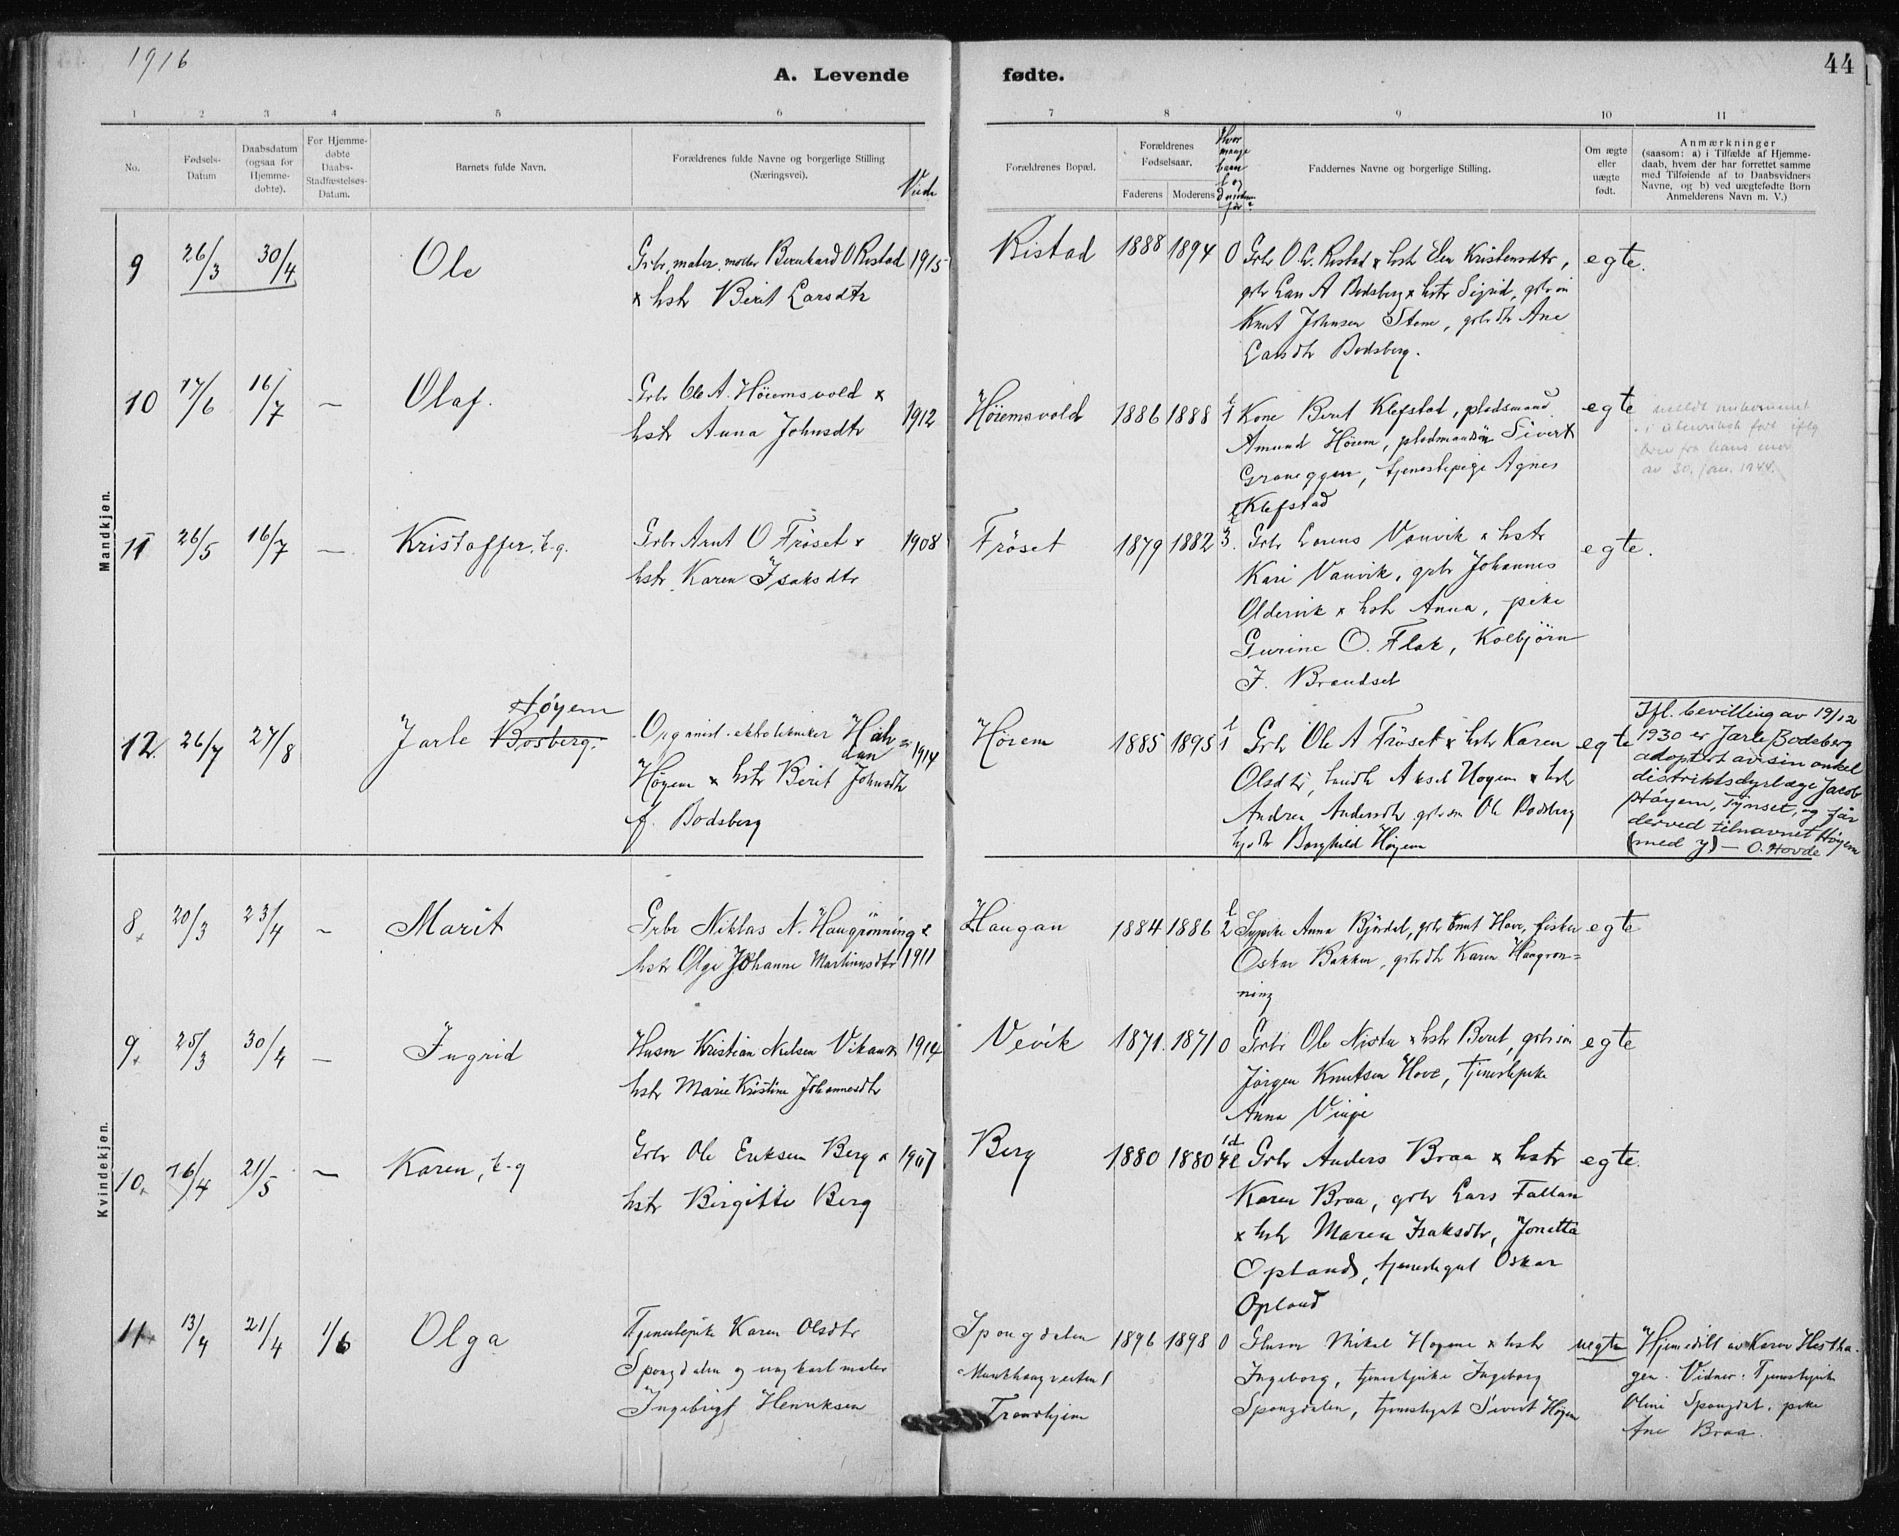 1916
44
A. Levende fødte.
1 2 3 4 5 6 7 8 9 10 11
No.
Fødsels-
Datum
Daabsdatum
(ogsaa for
Hjemme-
døbte).
For Hjemme-
døbte
Daabs-
Stadfæstelses-
Datum.
Barnets fulde Navn.
Forældrenes fulde Navne og borgerlige Stilling
(Næringsvei).
Viede
Forældrenes Bopæl.
Forældrenes
Fødselsaar.
Faderens Moderens
Hvor
mange
barn
Faddernes Navne og borgerlige Stilling.
Om ægte
eller
uægte
født.
Anmærkninger
(saasom: a) i Tilfælde af Hjemme-
daab, hvem der har forrettet samme
med Tilføiende af to Daabsvidners
Navne, og b) ved uægtefødte Børn
Anmelderens Navn m. V.)
Mandkjøn.
9 26/3 30/4 Ole
Grbr, maler, Bernhard O Ristad 1915
x hstr Berit Larsdtr
Ristad 1888 1894 0
Grbr O L. Ristad x hstr Elen Kristensdtr,
grbr Lars A Bodsberg x hstr Sigrid, grbrsøn
Knut Johnsen Stene, grbrdtr Ane
Larsdtr Bodsberg.
egte.
10 17/6 16/7 – Olaf.
Grbr Ole A. Höiemsvold x
hstr Anna Johnsdtr 1912
Höiemsvold 1886 1888 1
Kone Berit Klefstad, pladsmand
Amund Höiem, pladsmandsön Sivert
Graneggen, tjenestepige Agnes
Klefstad
egte
meldt omkommet
av 30. jan. 1944.
11 26/5 16/7 – Kristoffer, t.g.
Grbr Arnt O Fröset x 1908
hstr Karen Isaksdtr
Fröset 1879 1882 3.
Grbr Lorens Vanvik x hstr
Kari Vanvik, grbr Johannes
Oldervik x hstr Anna, pike
Gurine O. Flak, Kolbjörn
J. Brandset
egte.
12. 26/7 27/8 Jarle Bosberg. Höyem
Organist Halv=
dan
Höyem x hstr Berit Johnsdtr 1914
f. Bodsberg
Höiem 1885 1895 1
Grbr Ole A Fröset x hstr Karen
Olsdtr, Aksel Höyem x hstr
Andrea Andersdtr grbrsøn Ole Bodsberg
Borghild Höyem
egte
Ifl. bevilling av 19/12
1930 er Jarle Bodsberg
adoptert av sin onkel
distriktsdyrlæge Jacob
Høyem, Tynset, og får
derved tilnavnet Høyem
(med y) – O. Hovde
Kvindekjøn.
8 20/3 23/4 – Marit
Grbr Niklas N. Haugrönning x
hstr Olga Johanne Martinusdtr 1911
Haugan 1884 1886 2
Sypike Anna Björdal, grbr Knut Hove, fisker
Oskar Bakken, grbrdtr Karen Haugrön=
ning
egte
9 25/3 30/4 – Ingrid
Husm Kristian Nielsen Vikan x 1914
hstr Marie Kristine Johannesdtr
Vevik 1871. 1871 0
Grbr Ole Nistu x hstr Berit, grbrsön
Jörgen Knutsen Hove, tjenestepike
Anna Vinje
egte
10 16/4 21/5 – Karen, t.g
Grbr Ole Eriksen Berg x 1907
hstr Birgitte Berg
Berg 1880 1880 1d 4l
Grbr Anders Braa x hstr
Karen Braa, grbr Lars Fallan
x hstr Maren Isaksdtr, Jonetta
Opland, tjenestegut Oskar
Opland
egte.
11 13/4 21/4 1/6 Olga
Tjenestepike Karen Olsdtr
Spongdalen og ungkarl maler
Ingebrigt Henriksen
Spongdalen 1896 1898 0
Trondhjem
Husm Mikal Höyem x hstr
Ingeborg, tjenestepike Ingeborg
Spongdalen, tjenestegut Sivert Höyem
uegte
Hjemedöbt av Karen Hestha-
gen. Vidner: Tjenestepike
Oline Spongdal, pike
Ane Braa.